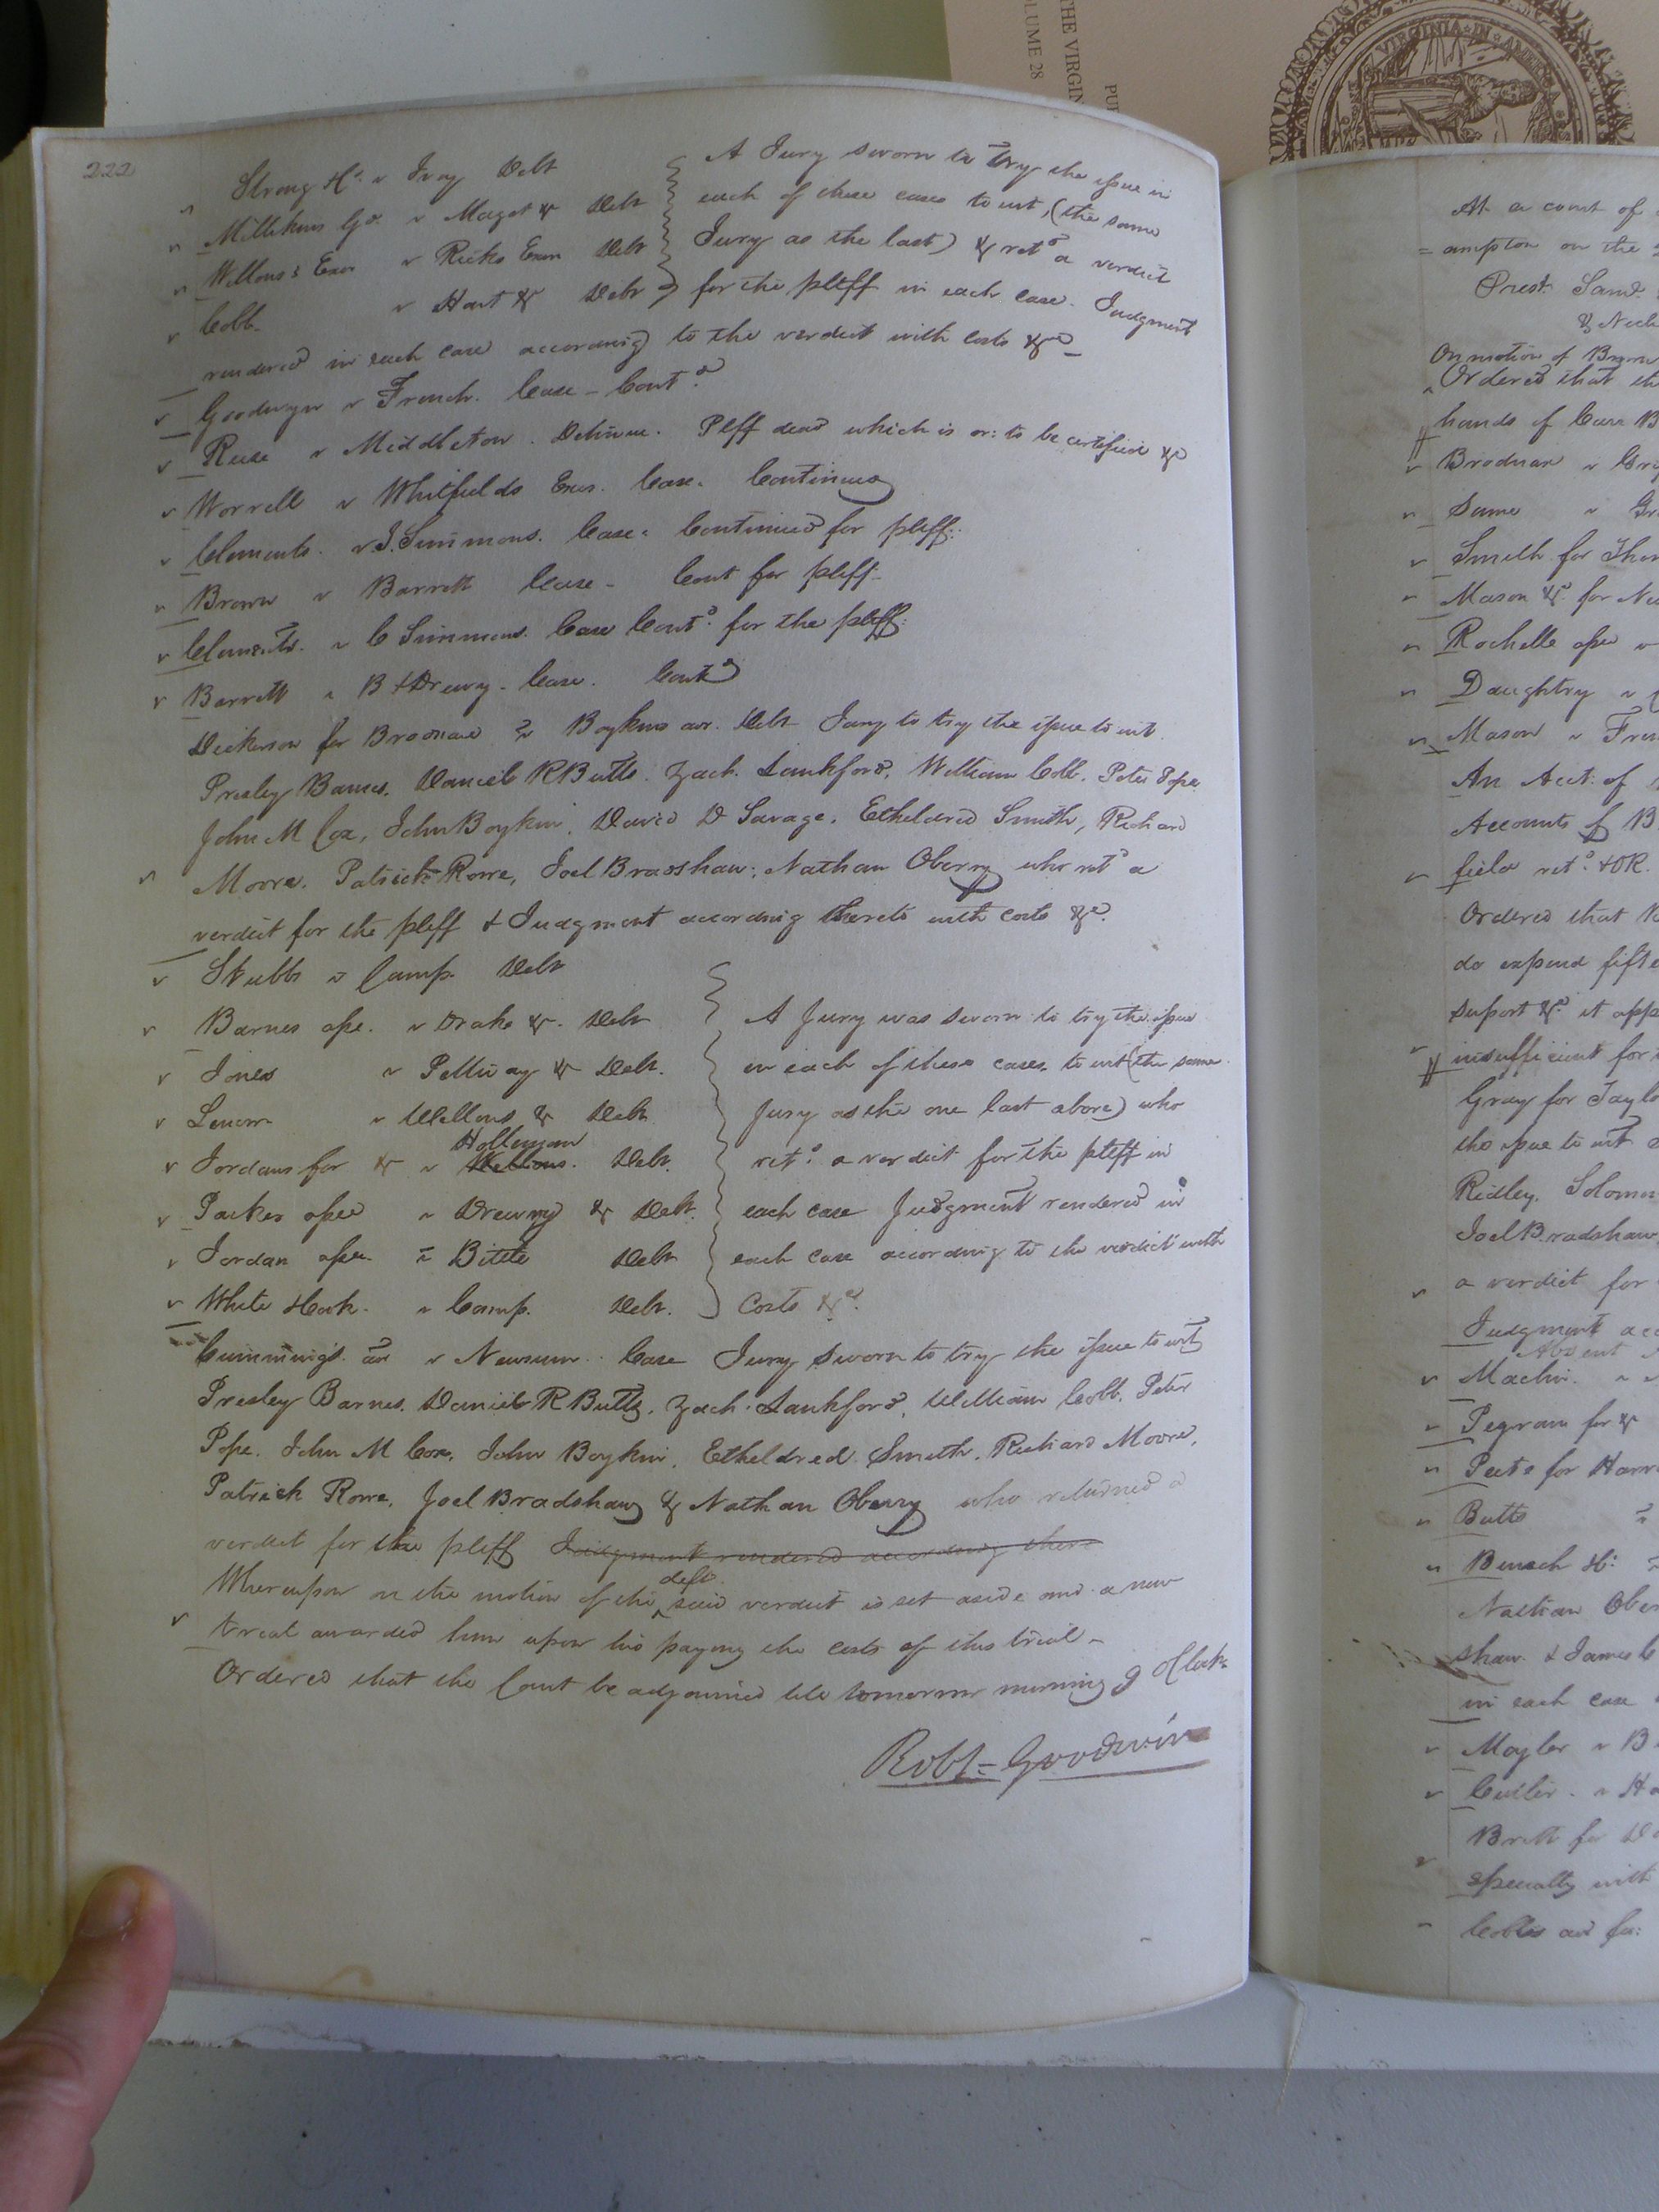 THE VIRGIN
VOLUME 28
PU
VIRGINIA IN
222
Strong &c. v Ivey Debt
Millikins Gr. v Maget & Debt
Wellons's Exor v Ricks Exon Debt
Cobb v Hart & Debt
A Jury sworn to try the issue in
each of these cases to wit, (the same
Jury as the last) & retd a verdict
for the pltff in each case. Judgment
rendered in each case according to the verdict with costs &c
Goodwyn v French. Case - Contd
Reese v Middleton. Detinue. Pltff dead which is or: to be certified &c
Worrell v Whitfields Exor. Case. Continued
Clements. v J. Simmons. Case. Continued for pltff.
Brown v Barrett Case - Cont for pltff-
Clements. v C Simmons. Case Contd. for the pltff.
Barrett v B & Drewry. Case. Contd
Dickerson for Bradnar v Boykins adr. Debt Jury to try the issue to wit.
Presley Barnes, Daniel R Butts. Zach. Lankford, William Cobb, Peter Pope
John M Cox, John Boykin, David D Savage, Etheldred Smith, Richard
Moore. Patrick Rowe, Joel Bradshaw, Nathan Oberry who retd a
verdict for the pltff & Judgment according thereto with costs &c.
Stubbs v Camp. Debt
Barnes asse. v Drake &. Debt
Jones v Pettway & Debt.
v Wellons & Debt
Holleman
Jordans for & v Wellons. Debt.
Parker asse v Drewry & Debt.
Jordan asse. v Bittle Debt
White &c v Camp. Debt.
A Jury was sworn to try the issue
in each of these cases to wit (the same
Jury as the one last above) who
retd. a verdict for the pltff in
each case Judgment rendered in
each case according to the verdict with
Costs &c.
Cummings. adr v Newsum. Case Jury sworn to try the issue to wit
Presley Barnes, Daniel R Butts, Zach. Lankford, William Cobb, Peter
Pope. John M Cox, John Boykin, Etheldred Smith, Richard Moore,
Patrick Rowe, Joel Bradshaw & Nathan Oberry who returned a
verdict for the pltff Judgment rendered according there
deft.
Whereupon on the motion of the said verdict is set aside and a new
trial awarded him upon his paying the costs of this trial -
Ordered that the Court be adjourned till tomorrow morning 9 OClock
Robt Goodwin
At a court of
=ampton on the
Prest. Saml.
& Nich
On motion of Brown
Ordered that the
hands of Carr B
Brodnax v
Same v Gr
Smith for Thom
Mason &. for Ne
Rochelle asse v
Daughtry v
Mason v Fren
An Acct. of
Accounts of B
field retd. & OR.
Ordered that
do expend fifte
suport &c. it app
insufficient for
Gray for Taylo
the issue to wit
Ridley, Solomon
Joel Bradshaw
a verdict for
Judgment acc
Absent
Maclin. v
Pegram for &
Peete for Harr
Butts v
Branch
Nathan Ober
shaw & James C
in each case
Moyler v B
v Ha
Britt for D
specialty with